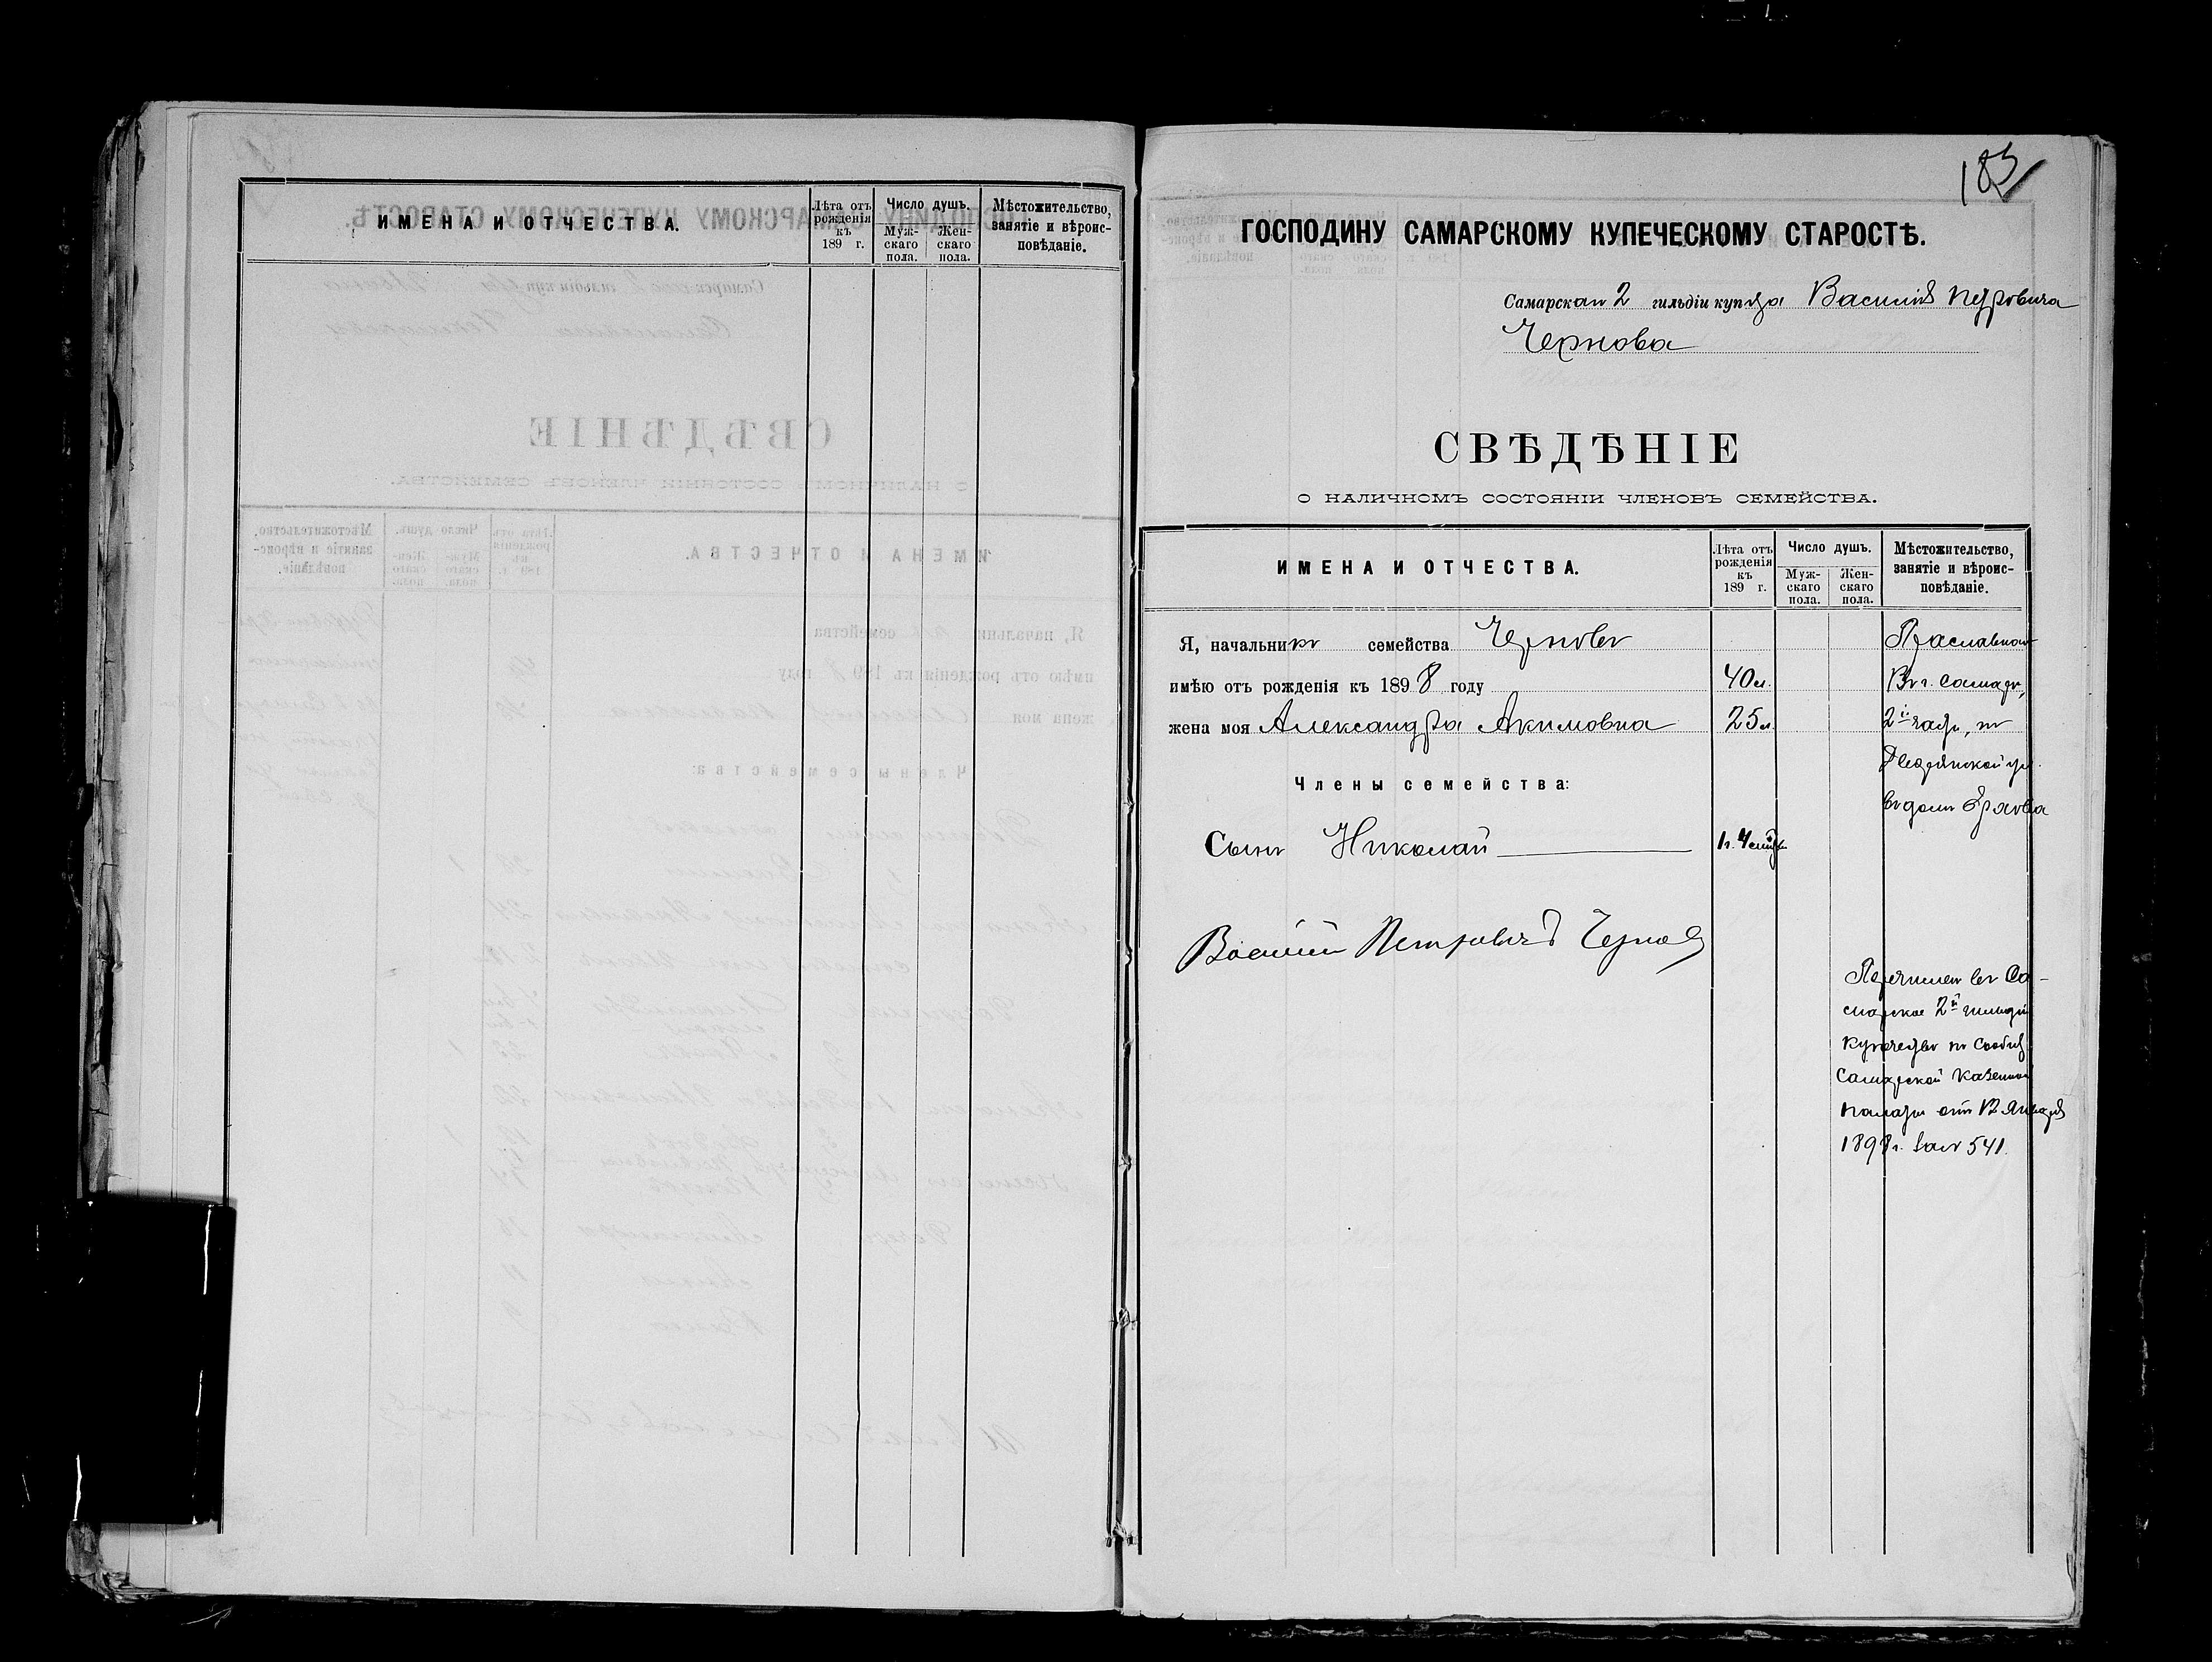 ИМЕНА И ОТЧЕСТВА.
Лѣта отъ
рожденія
къ
189 г.
Число душъ.
Муж-
скаго
пола.
Жен-
скаго
пола.
Мѣстожительство,
занятіе и вѣроис-
повѣданіе.
183
ГОСПОДИНУ САМАРСКОМУ КУПЕЧЕСКОМУ СТАРОСТѢ.
Самарскаго 2 гильдіи купца Василія Петровича
Чернова
СВѢДѢНІЕ
О НАЛИЧНОМЪ СОСТОЯНІИ ЧЛЕНОВЪ СЕМЕЙСТВА.
ИМЕНА И ОТЧЕСТВА.
Лѣта отъ
рожденія
къ
189 г.
Число душъ.
Муж-
скаго
пола.
Жен-
скаго
пола.
Мѣстожительство,
занятіе и вѣроис-
повѣданіе.
Я, начальникъ семейства Черновъ
имѣю отъ рожденія къ 1898 году 40 л.
жена моя Александра Акимовна 25 л.
Члены семейства:
Сынъ Николай
Василий Петровичъ Чернов
Православнаго
Въ г. Самарѣ,
2й части, по
Дворянской ул.
въ домѣ
Перечислен въ Са-
марское 2й гильдіи
купечество по
Самарской Казенной
палаты отъ 12 Января
1898 г. за № 541.